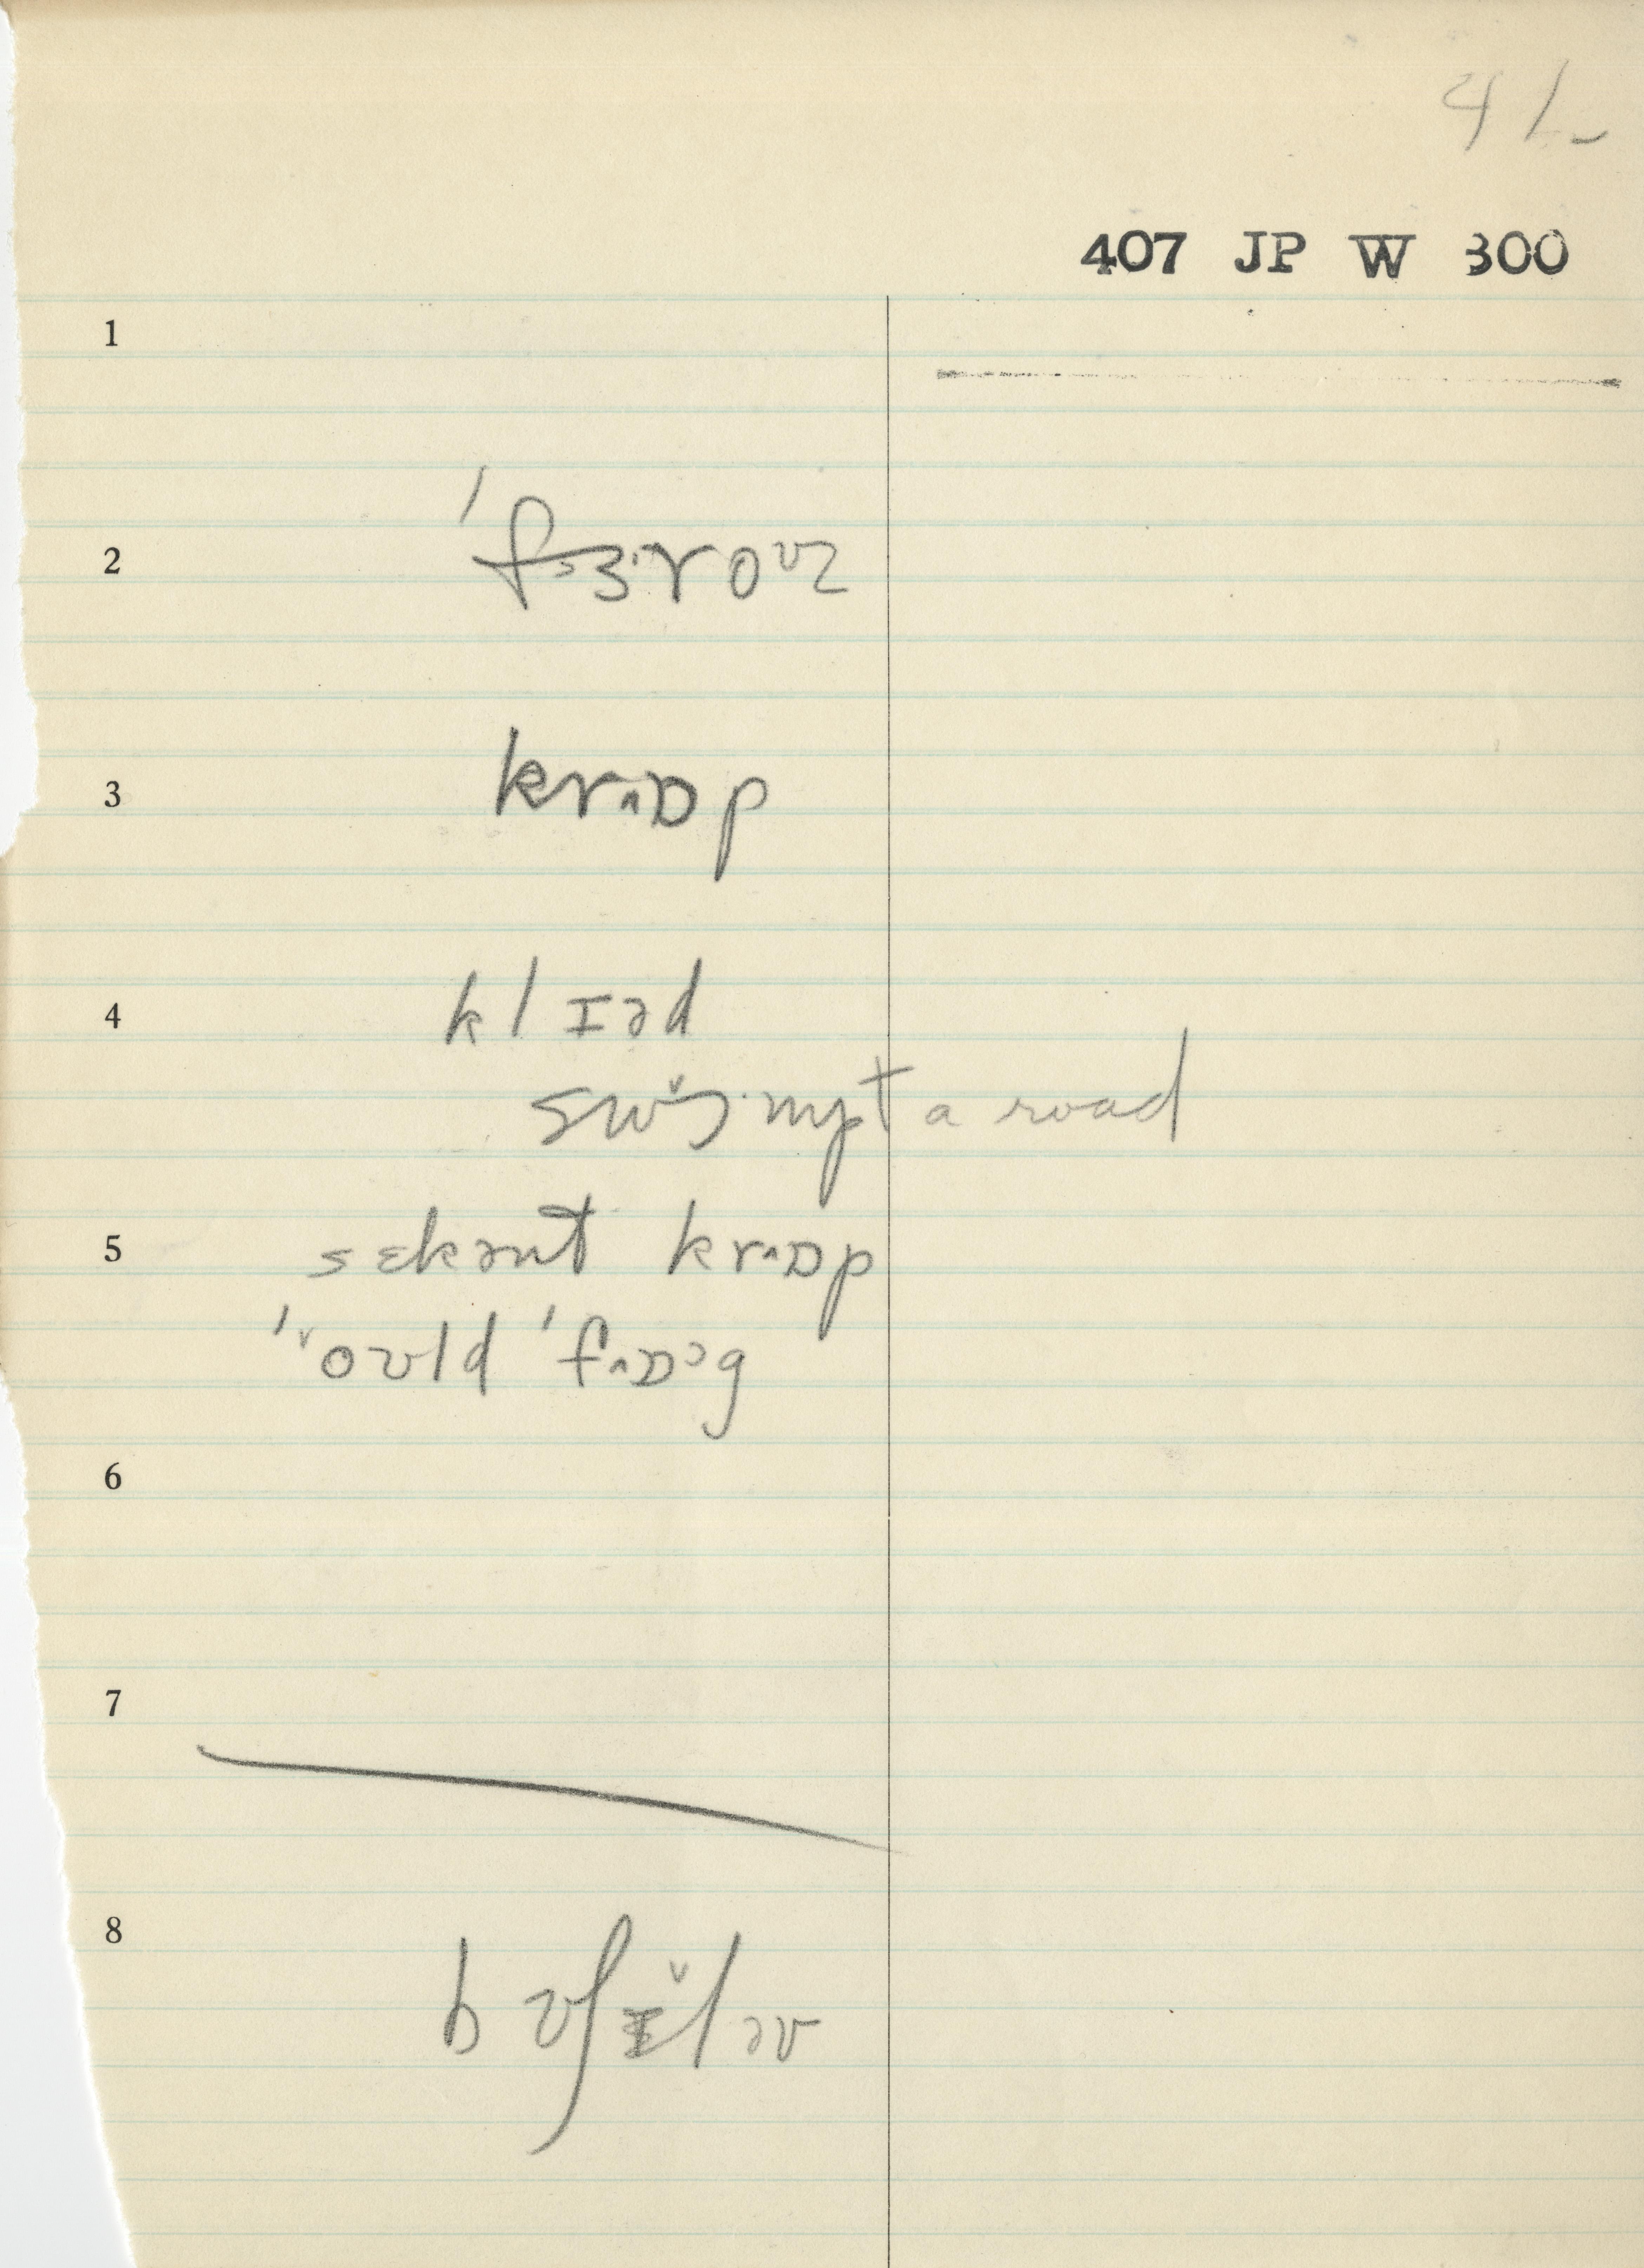 41-
407 JP W 300
1
2 ˈfɜ·roʊz
3 krɒp
4 klɪəd
swɔ̌·mpt a road
5 sɛkənt krɒp
ˈoʊld ˈfɒᵊg
6
7
8 bʊʃɪ̌l əv